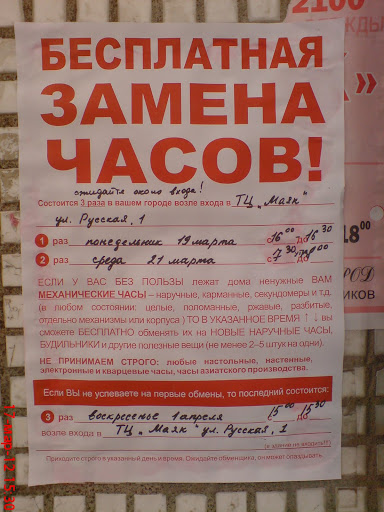 2100
БЕСПЛАТНАЯ
ЗАМЕНА
ЧАСОВ!
ожидайте около входа!
Состоится 3 раза в вашем городе возле входа в ТЦ „Маяк"
ул. Русская, 1
1 раз понедельник 19 марта с 16 00 до 16 30
2 раз среда 21 марта с 7 30 до 8 00
ЕСЛИ У ВАС БЕЗ ПОЛЬЗЫ лежат дома ненужные ВАМ
МЕХАНИЧЕСКИЕ ЧАСЫ – наручные, карманные, секундомеры и т.д.
(в любом состоянии: целые, поломанные, ржавые, разбитые,
отдельно механизмы или корпуса ) ТО В УКАЗАННОЕ ВРЕМЯ ↑ ↓ вы
сможете БЕСПЛАТНО обменять их на НОВЫЕ НАРУЧНЫЕ ЧАСЫ,
БУДИЛЬНИКИ и другие полезные вещи (не менее 2–5 штук на одни).
НЕ ПРИНИМАЕМ СТРОГО: любые настольные, настенные,
электронные и кварцевые часы, часы азиатского производства.
Если ВЫ не успеваете на первые обмены, то последний состоится:
3 раз воскресенье 1 апреля с 15 00 до 15 30
возле входа в ТЦ „Маяк" ул. Русская, 1
(в здание не входить!!!)
Приходите строго в указанный день и время. Ожидайте обменщика, он может опаздывать.
18 00